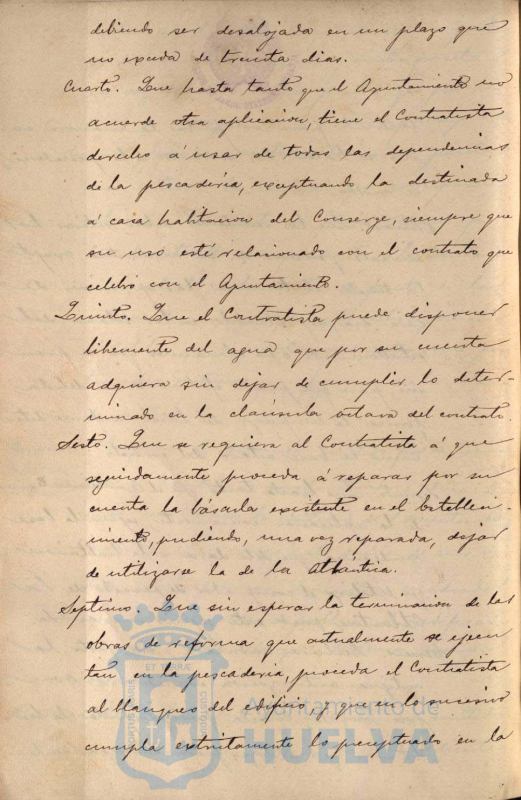 debiendo ser desalojada en un plazo que
no exceda de treinta dias.
Cuarto. Que hasta tanto que el Ayuntamiento no
acuerde otra aplicacion, tiene el Contratista
derecho á usar de todas las dependencias
de la pescadería, exceptuando la destinada
á casa habitacion del Conserge, siempre que
su uso esté relacionado con el contrato que
celebró con el Ayuntamiento.
Quinto. Que el Contratista puede disponer
libremente del agua que por su cuenta
adquiera sin dejar de cumplir lo deter-
minado en la cláusula octava del contrato.
Sesto. Que se requiera al Contratista á que
seguidamente proceda á reparar por su
cuenta la báscula existente en el Estableci-
miento, pudiendo, una vez reparada, dejar
de utilizarse la de la Atlántica.
Septimo. Que sin esperar la terminacion de las
obras de reforma que actualmente se ejecu
tan en la pescaderia, proceda el Contratista
al blanqueo del edificio, y que en lo sucesivo
cumpla extrictamente lo preceptuado en la
Ayuntamiento de
HUELVA